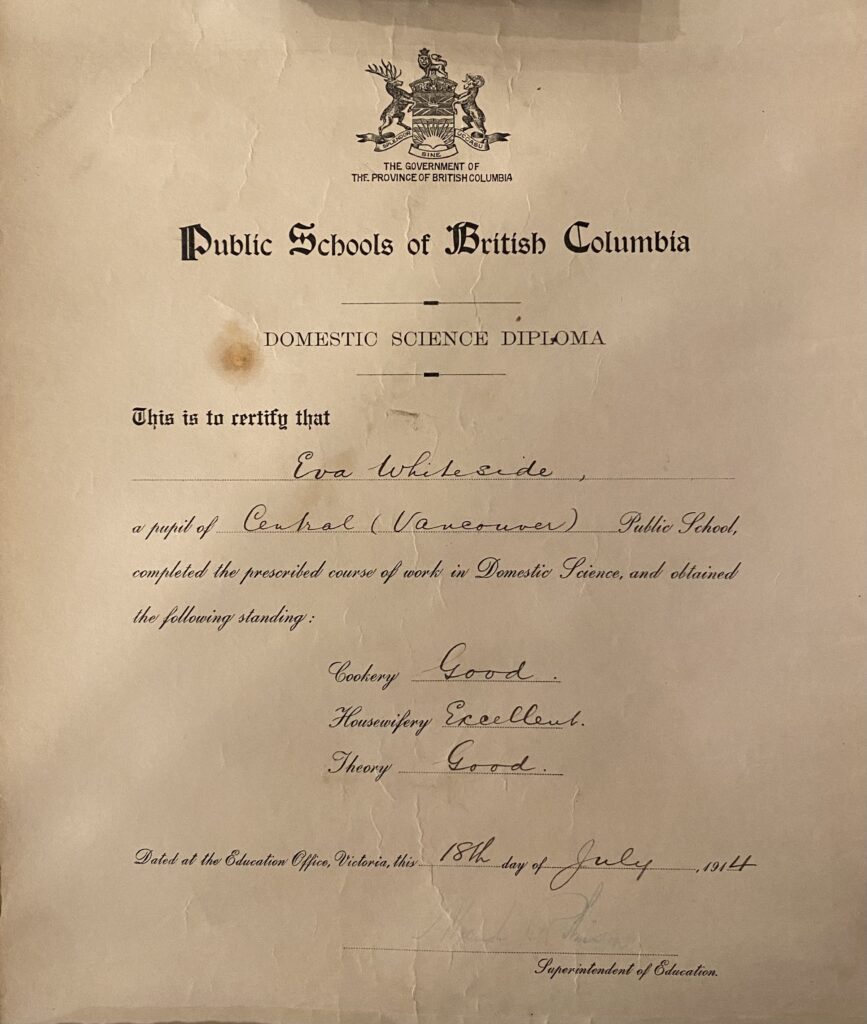 SPLENDOR SINE OCCASU
THE GOVERNMENT OF
THE PROVINCE OF BRITISH COLUMBIA
Public Schools of British Columbia
DOMESTIC SCIENCE DIPLOMA
This is to certify that
Eva Whiteside,
a pupil of Central (Vancouver) Public School,
completed the prescribed course of work in Domestic Science, and obtained
the following standing:
Cookery Good.
Housewifery Excellent.
Theory Good.
Dated at the Education Office, Victoria, this 18th day of July, 1914
Superintendent of Education.